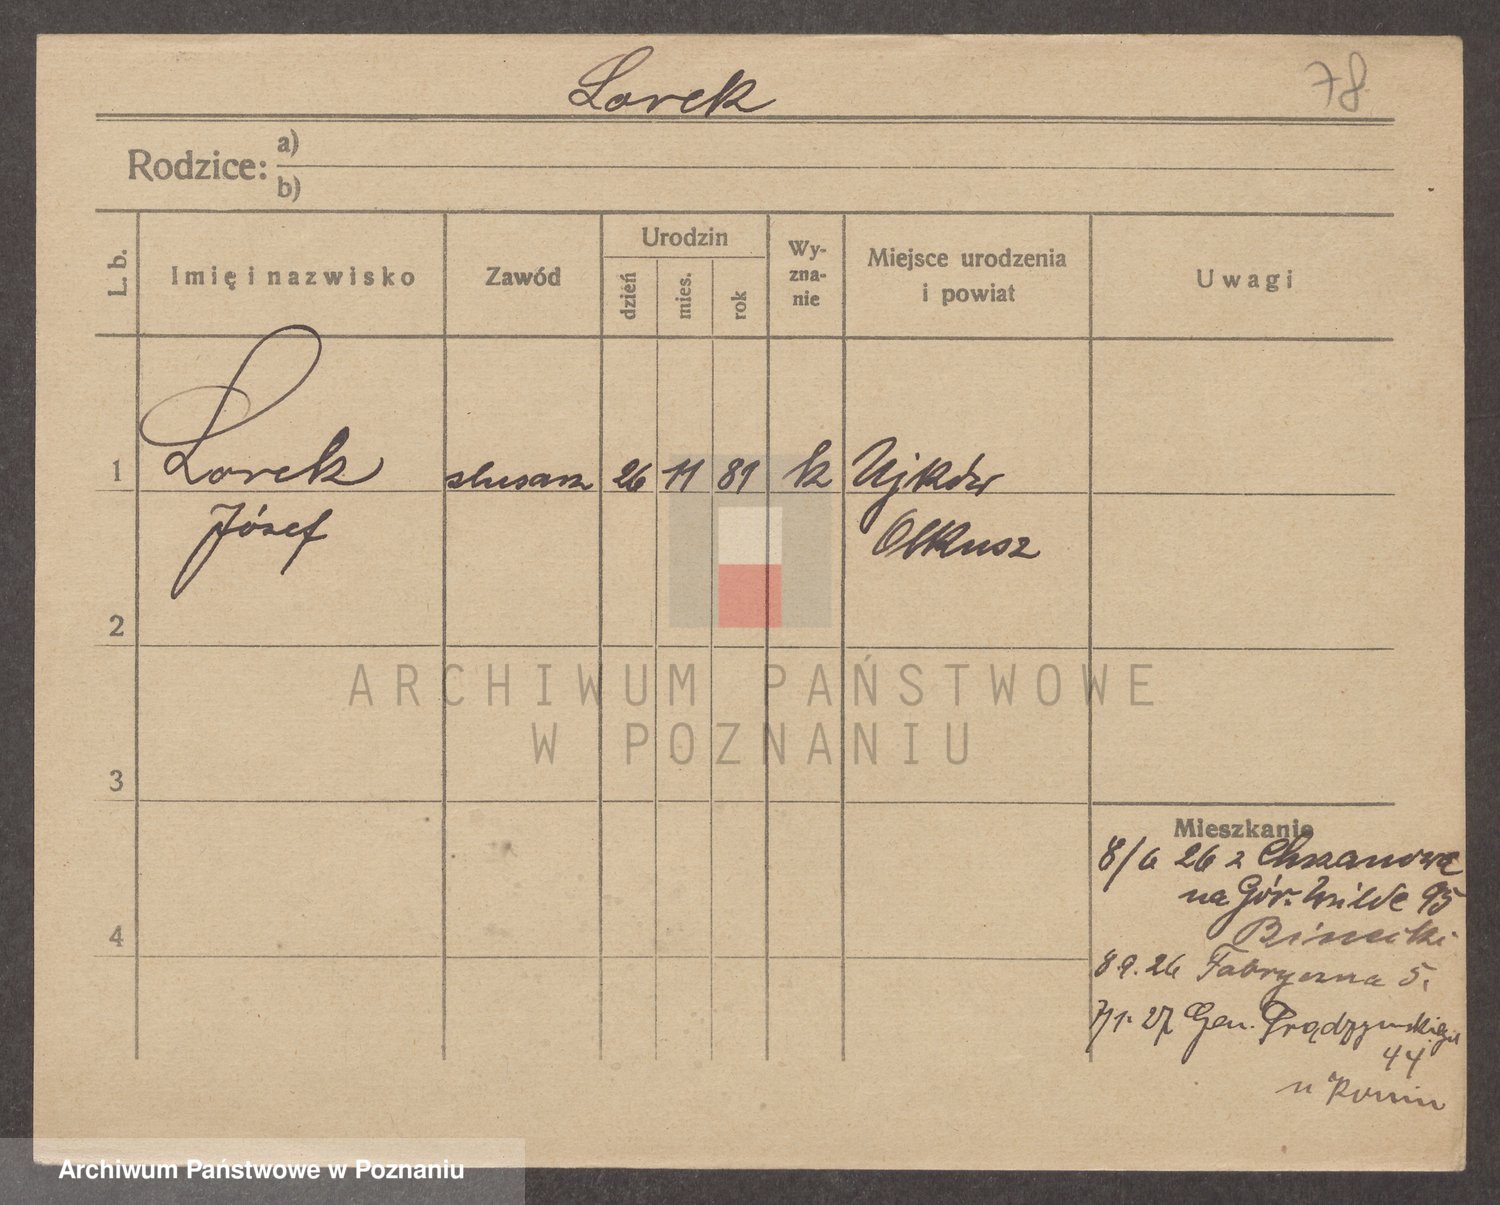 Lorek
78
Rodzice: a)
b)
L. b.
Imię i nazwisko
Zawód
Urodzin
dzień
mies.
rok
Wy-
zna-
nie
Miejsce urodzenia
i powiat
Uwagi
1 Lorek slusarz 26 11 81 k Ujków
Józef Olkusz
2
3
4
Mieszkanie
8/6 26 z Chrzanowa
na Gór. Wilde 95
8 9. 26 Fabryczna 5.
7/1. 27 Gen. Prądzyńskiego
44
ARCHIWUM PAŃSTWOWE
W POZNANIU
Archiwum Państwowe w Poznaniu